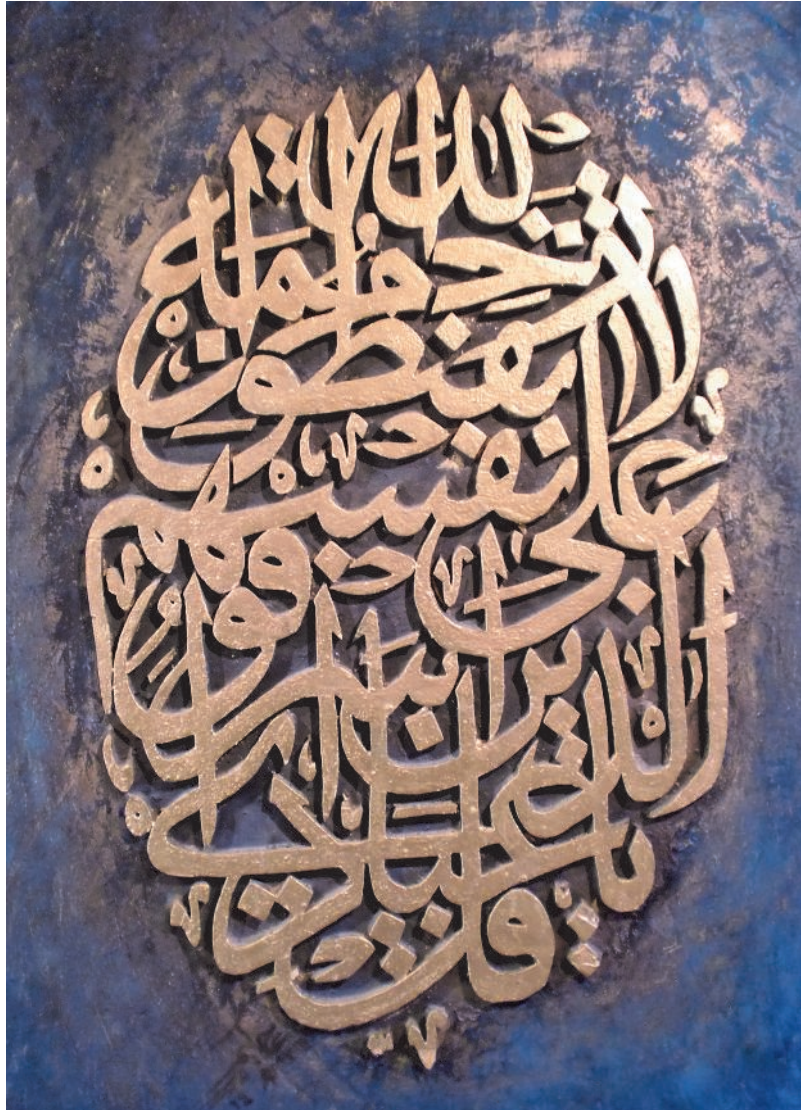 قل يا عبادي
الذين اسرفوا
على انفسهم
لا تقنطوا من
رحمة الله